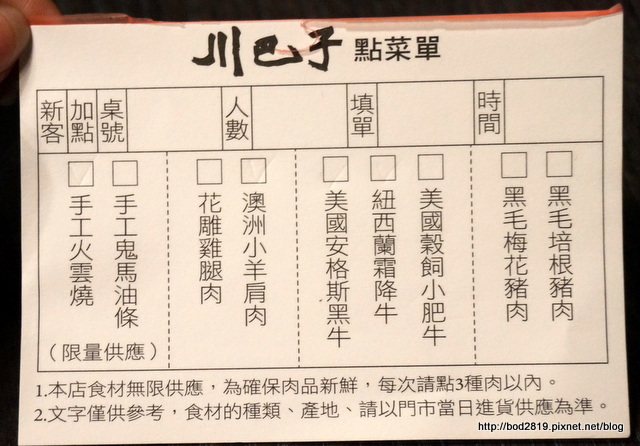 川巴子 點菜單
新客 加點 桌號 人數 填單 時間
黑毛培根豬肉
黑毛梅花豬肉
美國穀飼小肥牛
紐西蘭霜降牛
美國安格斯黑牛
澳洲小羊肩肉
花雕雞腿肉
手工鬼馬油條
手工火雲燒
(限量供應)
1.本店食材無限供應，為確保肉品新鮮，每次請點3種肉以內。
2.文字僅供參考，食材的種類、產地、請以門市當日進貨供應為準。
http://bod2819.pixnet.net/blog